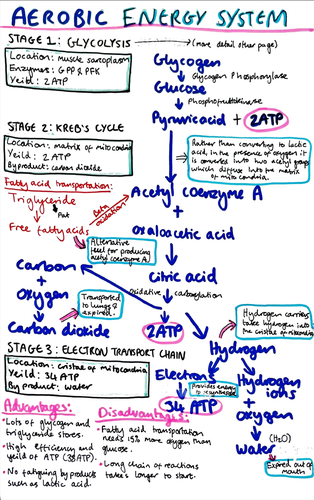 AEROBIC ENERGY SYSTEM
STAGE 1: GLYCOLYSIS
(more detail other page)
Location: muscle sarcoplasm
Enzymes: GPP & PFK
Yeild: 2ATP
Glycogen
Glycogen Phosphorylase
Glucose
Phosphofruktokinase
Pyruvic acid + 2ATP
STAGE 2: KREB'S CYCLE
Location: matrix of mitocondria
Yeild: 2 ATP
By product: carbon dioxide
Rather than converting to lactic
acid, in the presence of oxygen it
is converted into two acetyl groups
which diffuse into the matrix
of mitocondria.
Fatty acid transportation:
Triglyceride
Fat
Free fatty acids
Beta
oxidation
Acetyl coenzyme A
+
Oxaloacetic acid
Alternative
fuel for producing
acetyl coenzyme A
Citric acid
Oxidative carboxylation
Carbon
+
Oxygen
Carbon dioxide
Transported
to lungs &
expired.
2ATP
Hydrogen
Hydrogen carriers
take hydrogen into
the cristae of mitocondria
STAGE 3: ELECTRON TRANSPORT CHAIN
Location: cristae of mitocondria
Yeild: 34 ATP
By product: water
Electrons
Provides energy
to resynthesise
34 ATP
Hydrogen
ions
+
oxygen
(H2O)
water
Expired out of
mouth
Advantages:
• Lots of glycogen and
triglyceride stores.
• High efficiency and
yeild of ATP (38ATP).
• No fatiguing by products
such as lactic acid.
Disadvantages:
• Fatty acid transportation
needs 15% more oxygen than
glucose.
• Long chain of reactions
takes longer to start.